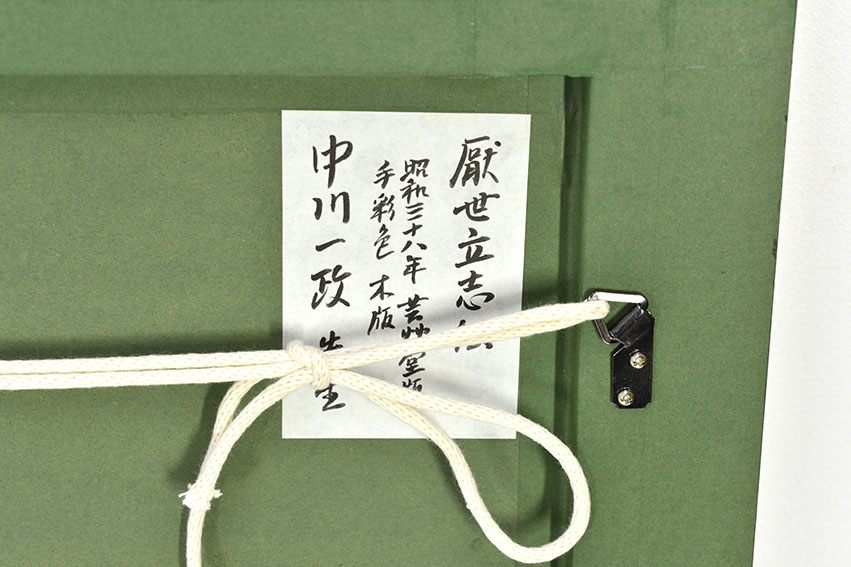 厭世立志伝
昭和三十八年 芸艸堂版
手彩色 木版
中川一政 先生